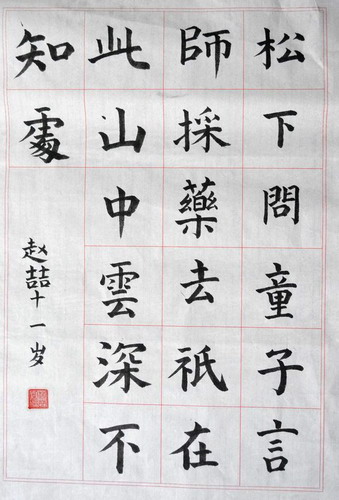 松下問童子言
師採藥去祇在
此山中雲深不
知處
赵喆十一岁